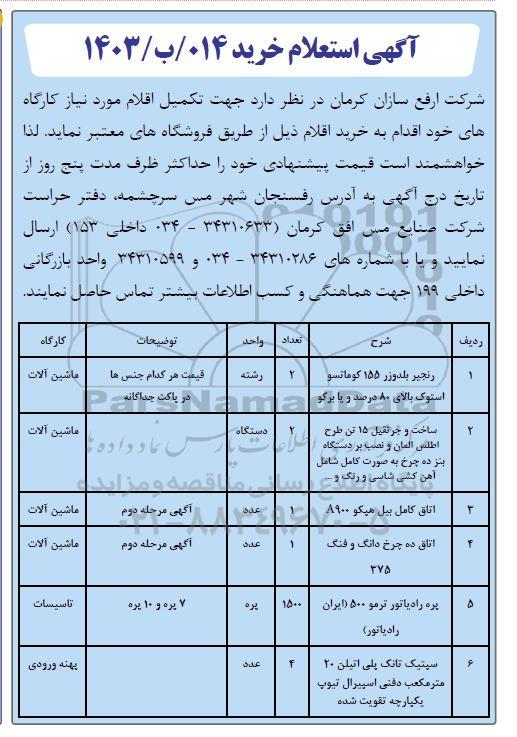 آگهی استعلام خرید ۰۱۴/ب/۱۴۰۳
شرکت ارفع سازان کرمان در نظر دارد جهت تکمیل اقلام مورد نیاز کارگاه
های خود اقدام به خرید اقلام ذیل از طریق فروشگاه های معتبر نماید. لذا
خواهشمند است قیمت پیشنهادی خود را حداکثر ظرف مدت پنج روز از
تاریخ درج آگهی به آدرس رفسنجان شهر مس سرچشمه، دفتر حراست
شرکت صنایع مس افق کرمان (۳۴۳۱۰۶۳۳ - ۰۳۴ داخلی ۱۵۳) ارسال
نمایید و یا با شماره های ۳۴۳۱۰۲۸۶ - ۰۳۴ و ۳۴۳۱۰۵۹۹ واحد بازرگانی
داخلی ۱۹۹ جهت هماهنگی و کسب اطلاعات بیشتر تماس حاصل نمایند.
ردیف شرح تعداد واحد توضیحات کارگاه
۱ رنجیر بلدوزر ۱۵۵ کوماتسو ۲ رشته قیمت هر کدام جنس ها ماشین آلات
استوک بالای ۸۰ درصد و یا برکو در پاکت جداگانه
۲ ساخت و جرثقیل ۱۵ تن طرح ۲ دستگاه ماشین آلات
اطلس آلمان و نصب بر دستگاه
بنز ده چرخ به صورت کامل شامل
آهن کشی شاسی و رنگ و ...
۳ اتاق کامل بیل هپکو A۹۰۰ ۱ عدد آگهی مرحله دوم ماشین آلات
۴ اتاق ده چرخ دانگ و فنگ ۱ عدد آگهی مرحله دوم ماشین آلات
۳۷۵
۵ پره رادیاتور ترمو ۵۰۰ (ایران ۱۵۰۰ پره ۷ پره و ۱۰ پره تاسیسات
رادیاتور)
۶ سپتیک تانک پلی اتیلن ۲۰ ۴ عدد پهنه ورودی
مترمکعب دفنی اسپیرال تیوپ
یکپارچه تقویت شده
ParsNamadData
پایگاه اطلاع رسانی مناقصه و مزایده
۰۲۱-۸۸۳۴۹۶۷۰-۵